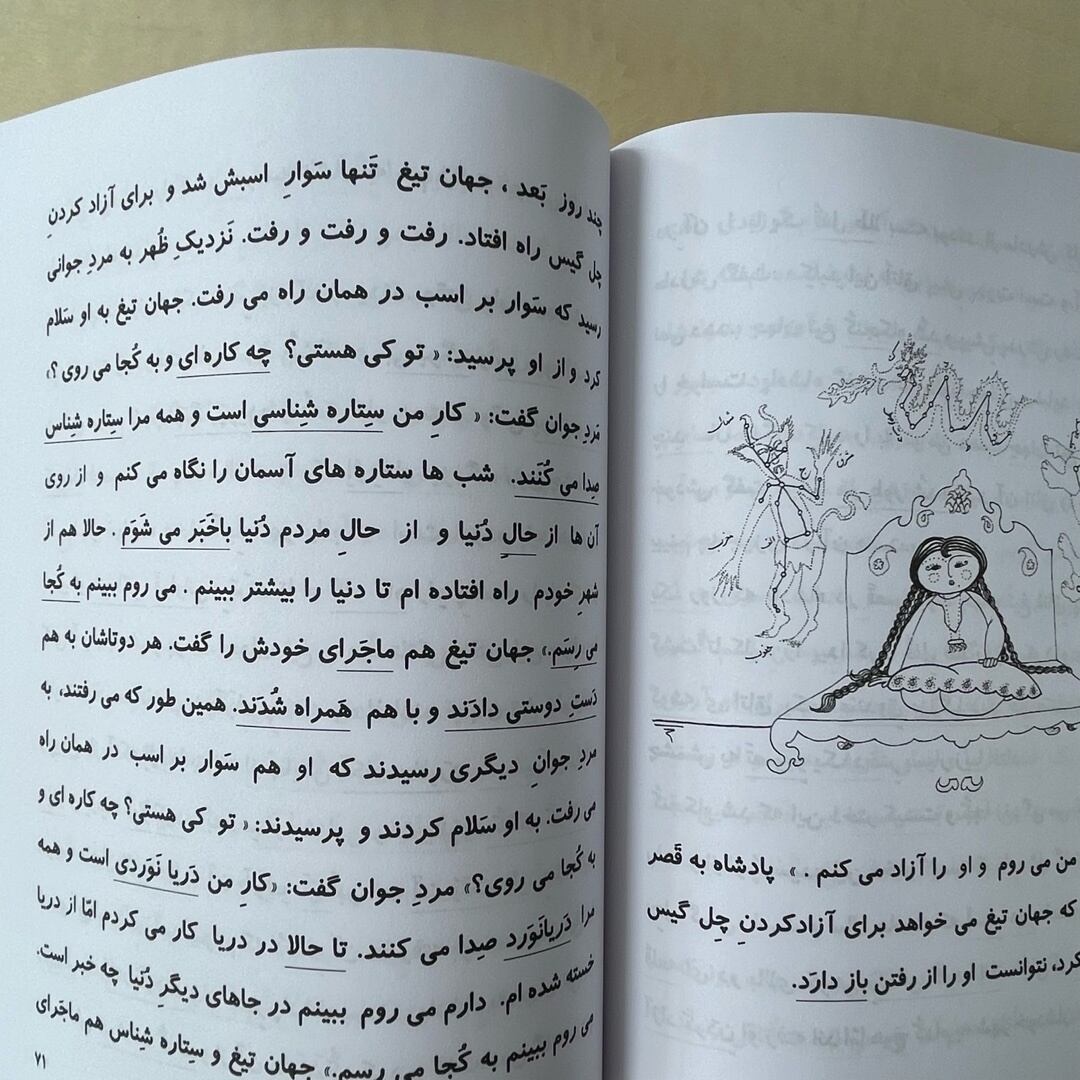 من می روم و او را آزاد می کنم . » پادشاه به قَصر
که جهان تیغ می خواهد برای آزادکردنِ چِل گیس
کرد، نتوانست او را از رفتن باز دارَد.
چند روز بَعد ، جهان تیغ تَنها سَوارِ اسبش شد و برای آزاد کردنِ
چِل گیس راه افتاد. رفت و رفت و رفت. نَزدیکِ ظُهر به مردِ جوانی
رسید که سَوار بر اسب در همان راه می رفت. جهان تیغ به او سَلام
کرد و از او پرسید: « تو کی هستی؟ چه کاره ای و به کُجا می روی ؟»
مَردِ جوان گفت: « کارِ من سِتاره شِناسی است و همه مرا سِتاره شِناس
صِدا می کُنَند. شب ها ستاره های آسمان را نگاه می کنم و از روی
آن ها از حالِ دُنیا و از حالِ مردم دُنیا باخَبَر می شَوَم . حالا هم از
شهرِ خودم راه افتاده ام تا دنیا را بیشتر ببینم . می روم ببینم به کُجا
می رِسَم.» جهان تیغ هم ماجَرای خودش را گفت. هر دوتاشان به هم
دَستِ دوستی دادَند و با هم هَمراه شُدَند. همین طور که می رفتند، به
مردِ جوانِ دیگری رسیدند که او هم سَوار بر اسب در همان راه
می رفت. به او سَلام کردند و پرسیدند: « تو کی هستی؟ چه کاره ای و
به کُجا می روی؟» مردِ جوان گفت: «کارِ من دَریا نَوَردی است و همه
مرا دَریانَوَرد صِدا می کنند. تا حالا در دریا کار می کردم امّا از دریا
خسته شده ام. دارم می روم ببینم در جاهای دیگرِ دُنیا چه خبر است.
می روم ببینم به کُجا می رسم.» جهان تیغ و سِتاره شِناس هم ماجَرای
۷۱